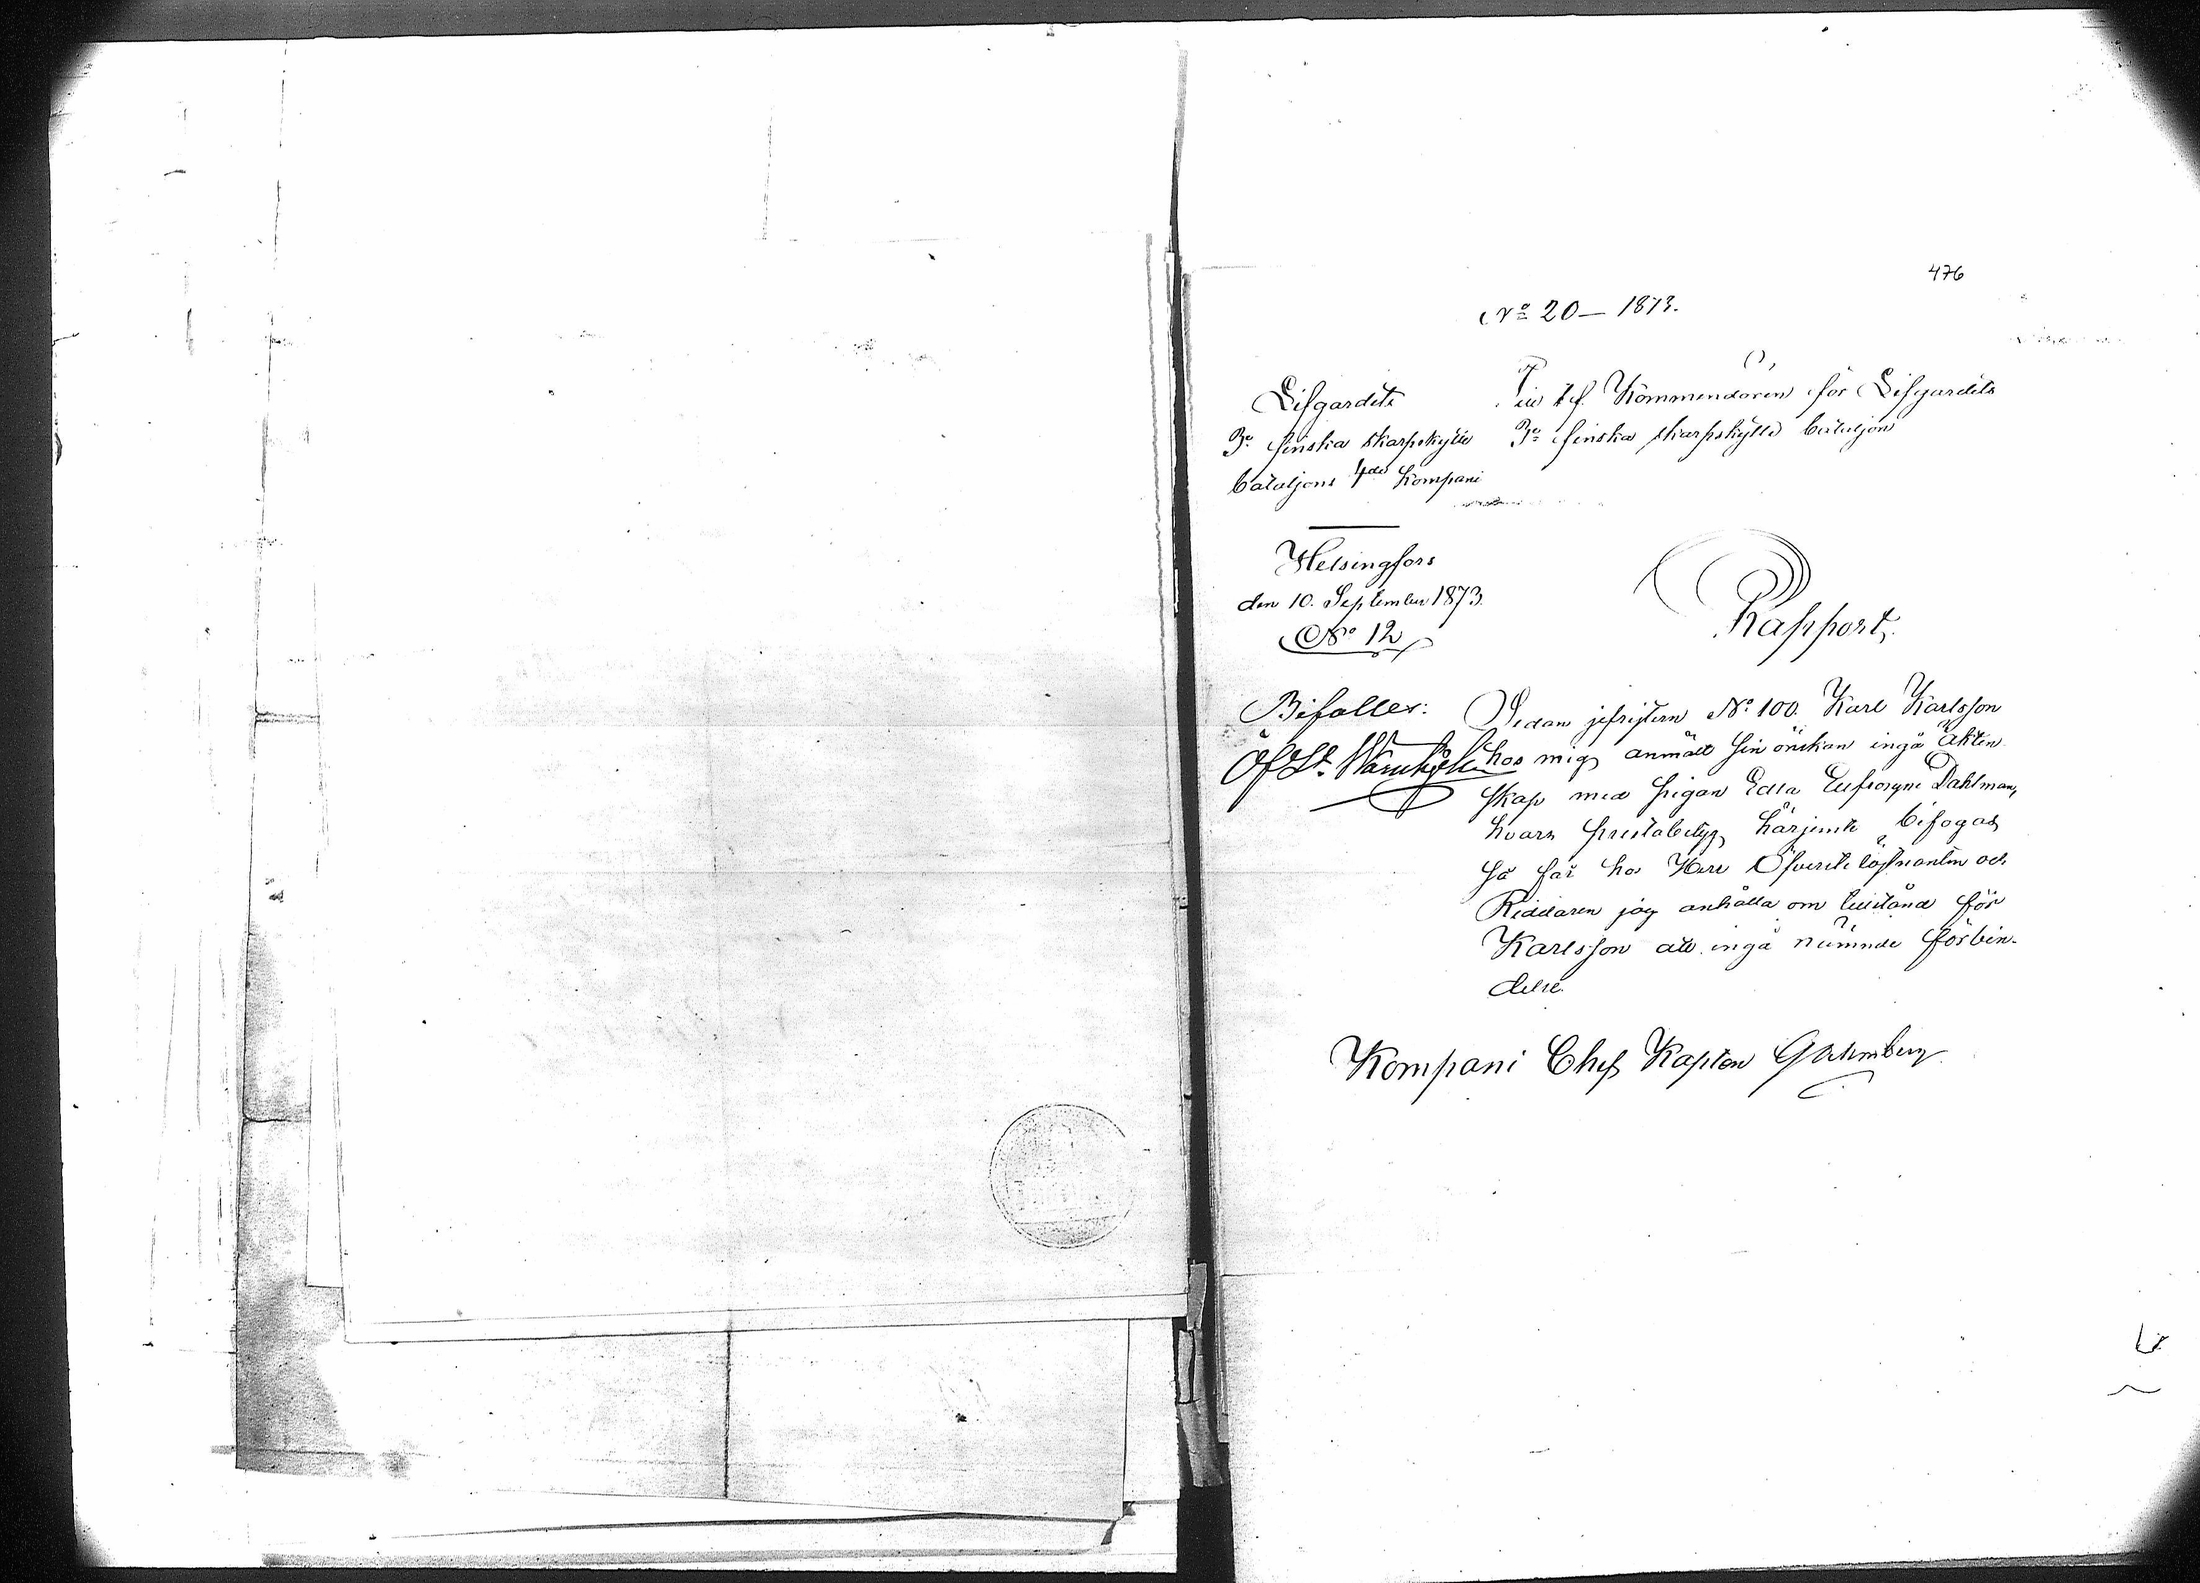 476
No 20 — 1873.
Lifgardets
3e finska skarpskytte
bataljons 4de Kompani
Till t.f. Kommendören för Lifgardets
3e finska skarpskytte bataljon
Helsingfors
den 10. September 1873.
No 12
Rapport,
Bifalles:
ÖfLt.
Sedan jefrejtern No 100. Karl Karlsson
hos mig anmält sin önskan ingå äkten
skap med pigan Edla Eufrosyne Dahlman,
hvars prestabetyg härjemte bifogas
så får hos Herr Öfverste löjtnanten och
Riddaren jag anhålla om tillstånd för
Karlsson att ingå nämnde förbin-
delse.
Kompani Chef Kapten